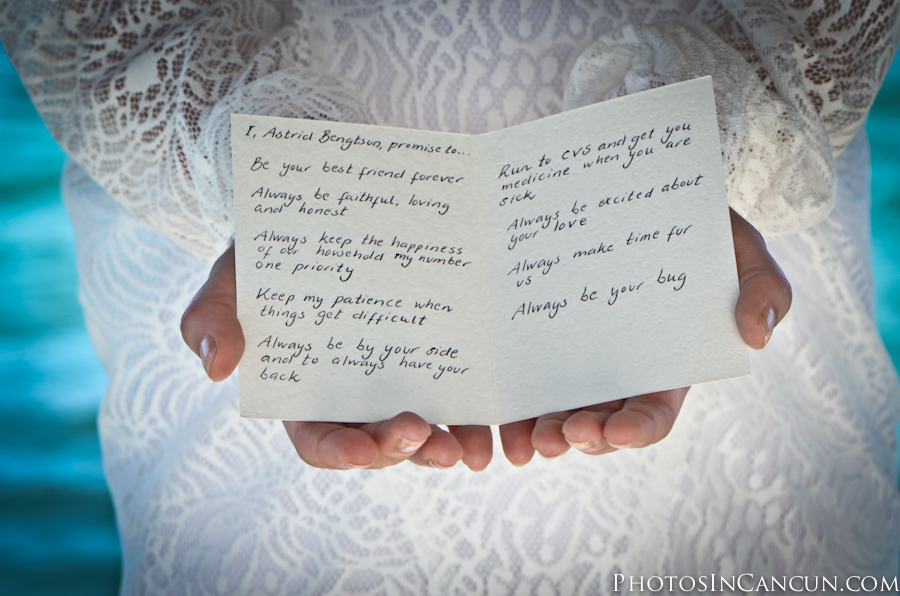 I, Astrid Bengtson, promise to...
Be your best friend forever
Always be faithful, loving
and honest
Always keep the happiness
of our household my number
one priority
Keep my patience when
things get difficult
Always be by your side
and to always have your
back
Run to CVS and get you
medicine when you are
sick
Always be excited about
your love
Always make time for
us
Always be your bug
PhotosInCancun.com